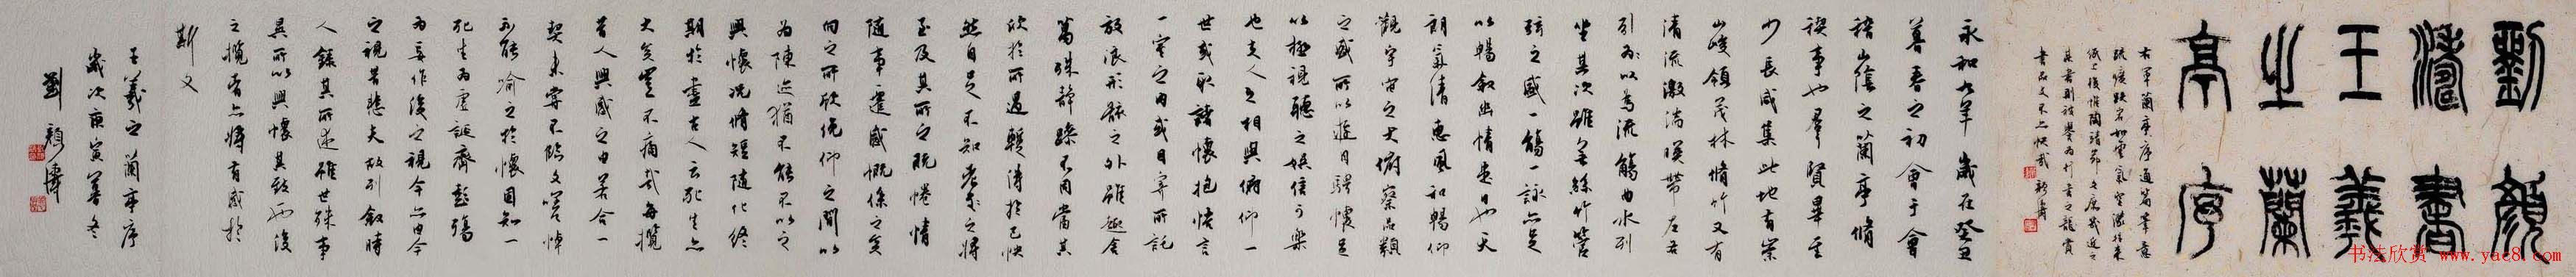 劉顏
濤書
王羲
之蘭
亭序
右軍蘭亭序通篇筆意
永和九年歲在癸丑
暮春之初會于會
稽山陰之蘭亭脩
禊事也羣賢畢至
少長咸集此地有崇
山峻領茂林脩竹又有
清流激湍暎帶左右
引以為流觴曲水列
坐其次雖無絲竹管
弦之盛一觴一詠亦足
以暢敘幽情是日也天
朗氣清惠風和暢仰
觀宇宙之大俯察品類
之盛所以遊目騁懷足
以極視聽之娛信可樂
也夫人之相與俯仰一
世或取諸懷抱悟言
一室之內或因寄所託
放浪形骸之外雖趣舍
萬殊靜躁不同當其
欣於所遇暫得於己快
然自足不知老之將
至及其所之既惓情
隨事遷感慨係之矣
向之所欣俛仰之間以
為陳迹猶不能不以之
興懷況脩短隨化終
期於盡古人云死生亦
大矣豈不痛哉每攬
昔人興感之由若合一
契未嘗不臨文嗟悼
不能喻之於懷固知一
死生為虛誕齊彭殤
為妄作後之視今亦由今
之視昔悲夫故列敘時
人錄其所述雖世殊事
異所以興懷其致一也後
之攬者亦將有感於
斯文
王羲之蘭亭序
歲次庚寅暮冬
劉顏濤
书法欣赏 www.yac8.com